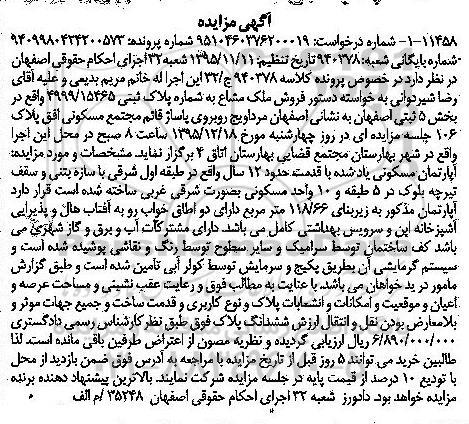 آگهی مزایده
۱۱۴۵۸-۱- شماره درخواست: ۹۵۱۰۴۶۰۳۷۶۲۰۰۰۱۹ شماره پرونده: ۹۴۰۹۹۸۰۴۳۴۲۰۰۵۷۳
شماره بایگانی شعبه: ۹۴۰۳۷۸ تاریخ تنظیم: ۱۳۹۵/۱۱/۱۱ شعبه ۳۲ اجرای احکام حقوقی اصفهان
در نظر دارد در خصوص پرونده کلاسه ۹۴۰۳۷۸ ج/۳۲ این اجرا له خانم مریم بدیعی و علیه آقای
رضا شیردوانی به خواسته دستور فروش ملک مشاع به شماره پلاک ثبتی ۴۹۹۹/۱۵۴۶۵ واقع در
بخش ۵ ثبتی اصفهان به نشانی اصفهان مرداویج روبروی پاساژ قائم مجتمع مسکونی افق پلاک
۱۰۶ جلسه مزایده ای در روز چهارشنبه مورخ ۱۳۹۵/۱۲/۱۸ ساعت ۸ صبح در محل این اجرا
واقع در شهر بهارستان مجتمع قضایی بهارستان اتاق ۴ برگزار نماید. مشخصات و مورد مزایده:
آپارتمان مسکونی یاد شده با قدمت حدود ۱۲ سال واقع در طبقه اول شرقی با سازه بتنی و سقف
تیرچه بلوک در ۵ طبقه و ۱۰ واحد مسکونی بصورت شرقی غربی ساخته شده است قرار دارد
آپارتمان مذکور به زیربنای ۱۱۸/۶۶ متر مربع دارای دو اطاق خواب رو به آفتاب هال و پذیرایی
آشپزخانه اپن و سرویس بهداشتی کامل می باشد. دارای مشترکات آب و برق و گاز شهری می
باشد کف ساختمان توسط سرامیک و سایر سطوح توسط رنگ و نقاشی پوشیده شده است و
سیستم گرمایشی آن بطریق پکیج و سرمایش توسط کولر آبی تأمین شده است و طبق گزارش
مامور در ید خواهان می باشد. با عنایت به مطالب فوق و رعایت عقب نشینی و مساحت عرصه و
اعیان و موقعیت و امکانات و انشعابات پلاک و نوع کاربری و قدمت ساخت و جمیع جهات موثر و
بلامعارض بودن نقل و انتقال ارزش ششدانگ پلاک فوق طبق نظر کارشناس رسمی دادگستری
۶/۸۹۰/۰۰۰/۰۰۰ ریال ارزیابی گردیده و نظریه مصون از اعتراض طرفین باقی مانده است. لذا
طالبین خرید می توانند ۵ روز قبل از تاریخ مزایده با مراجعه به آدرس فوق ضمن بازدید از محل
با تودیع ۱۰ درصد از قیمت پایه در جلسه مزایده شرکت نمایند. بالاترین پیشنهاد دهنده برنده
مزایده خواهد بود. دادورز شعبه ۳۲ اجرای احکام حقوقی اصفهان ۳۵۲۴۸ /م الف